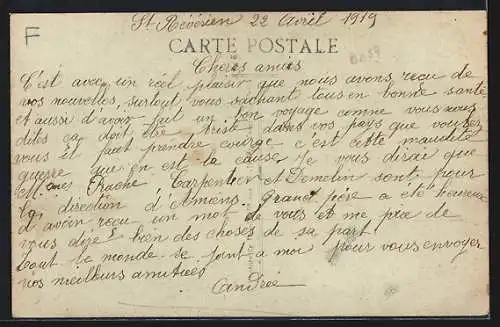 St Révérien 22 Avril 1919
F
CARTE POSTALE
Chères amies
C'est avec un réel plaisir que nous avons reçu de
vos nouvelles, surtout vous sachant tous en bonne santé
et aussi d'avoir fait un bon voyage comme vous nous
dites ça doit être triste dans vos pays que voulez
vous il faut prendre courage c'est cette maudite
guerre que en est la cause Je vous dirai que
Carpentier et Demolin sont pour
la direction d'Amiens. Grand père a été heureux
d'avoir reçu un mot de vous et me prie de
vous dire bien des choses de sa part.
Tout le monde se joint a moi pour vous envoyer
nos meilleurs amitiées
Andrée